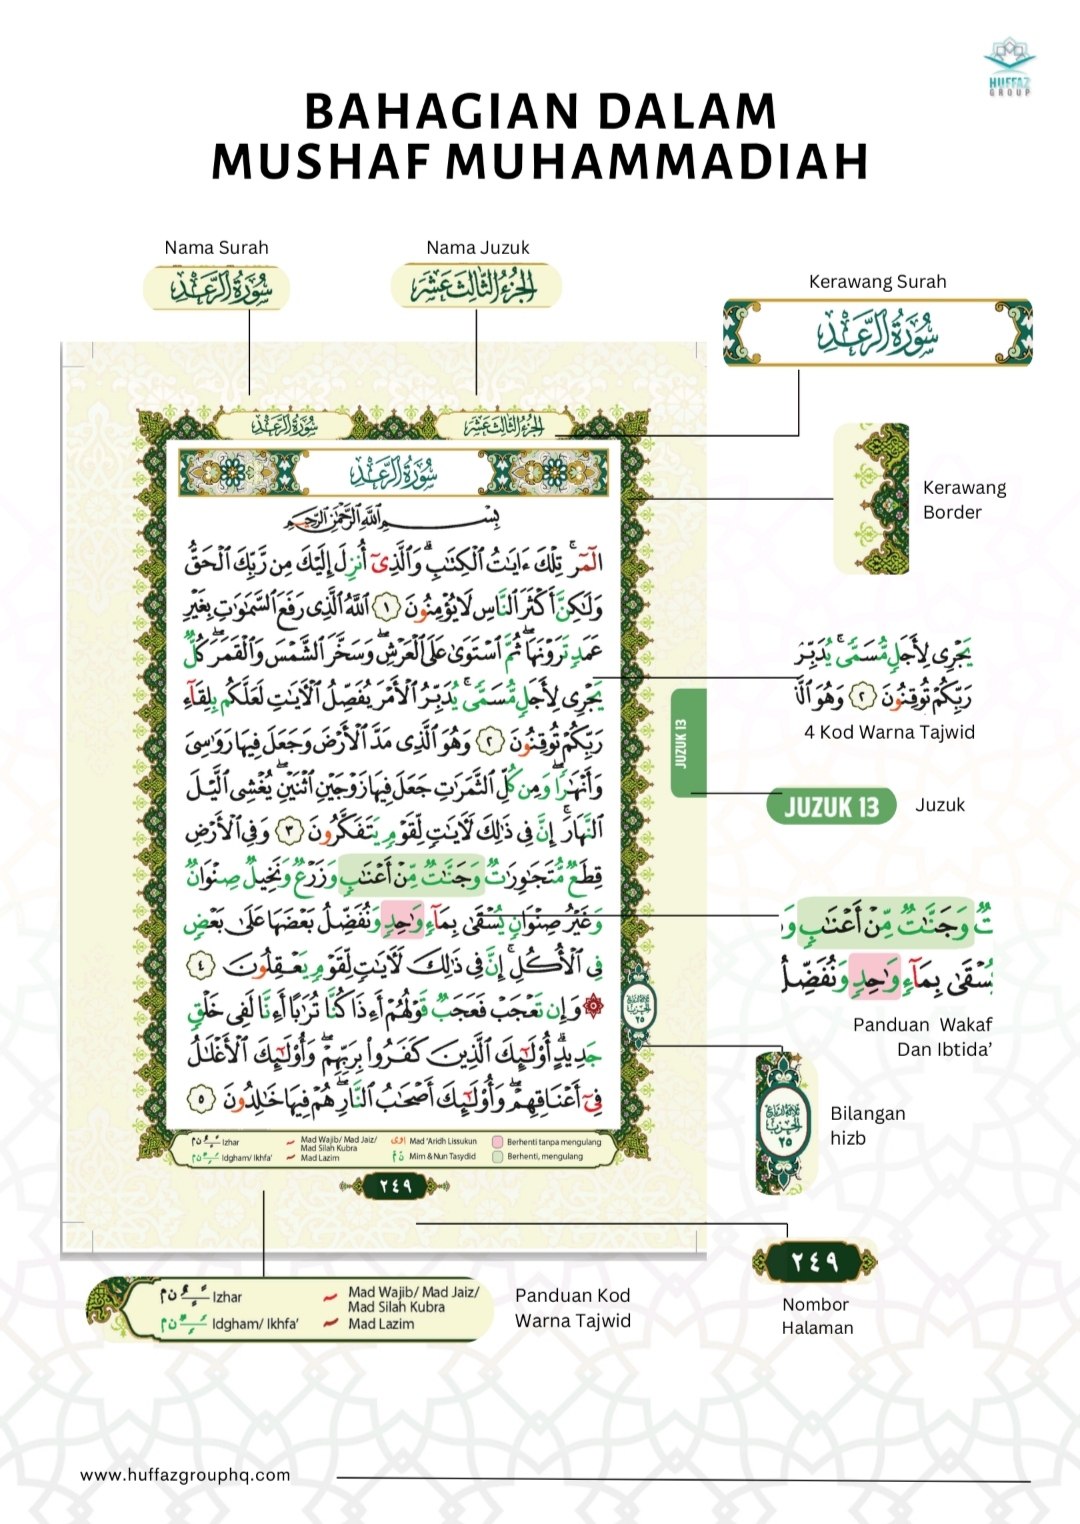 HUFFAZ
GROUP
BAHAGIAN DALAM
MUSHAF MUHAMMADIAH
Nama Surah
سُورَةُ الرَّعْدِ
Nama Juzuk
الجُزْءُ الثَّالِثَ عَشَرَ
Kerawang Surah
سُورَةُ الرَّعْدِ
سُورَةُ الرَّعْدِ
الجُزْءُ الثَّالِثَ عَشَرَ
سُورَةُ الرَّعْدِ
بِسْمِ اللَّهِ الرَّحْمَٰنِ الرَّحِيمِ
الٓمٓرۚ تِلْكَ ءَايَٰتُ الْكِتَٰبِۗ وَالَّذِىٓ أُنزِلَ إِلَيْكَ مِن رَّبِّكَ الْحَقُّ
وَلَٰكِنَّ أَكْثَرَ النَّاسِ لَا يُؤْمِنُونَ ١ اللَّهُ الَّذِى رَفَعَ السَّمَٰوَٰتِ بِغَيْرِ
عَمَدٍ تَرَوْنَهَاۖ ثُمَّ اسْتَوَىٰ عَلَى الْعَرْشِۖ وَسَخَّرَ الشَّمْسَ وَالْقَمَرَۖ كُلٌّ
يَجْرِى لِأَجَلٍ مُّسَمًّىۚ يُدَبِّرُ الْأَمْرَ يُفَصِّلُ الْآيَٰتِ لَعَلَّكُم بِلِقَآءِ
رَبِّكُمْ تُوقِنُونَ ٢ وَهُوَ الَّذِى مَدَّ الْأَرْضَ وَجَعَلَ فِيهَا رَوَٰسِىَ
وَأَنْهَٰرًاۖ وَمِن كُلِّ الثَّمَرَٰتِ جَعَلَ فِيهَا زَوْجَيْنِ اثْنَيْنِۖ يُغْشِى الَّيْلَ
النَّهَارَۚ إِنَّ فِى ذَٰلِكَ لَآيَٰتٍ لِّقَوْمٍ يَتَفَكَّرُونَ ٣ وَفِى الْأَرْضِ
قِطَعٌ مُّتَجَٰوِرَٰتٌ وَجَنَّٰتٌ مِّنْ أَعْنَٰبٍ وَزَرْعٌ وَنَخِيلٌ صِنْوَانٌ
وَغَيْرُ صِنْوَانٍ يُسْقَىٰ بِمَآءٍ وَٰحِدٍ وَنُفَضِّلُ بَعْضَهَا عَلَىٰ بَعْضٍ
فِى الْأُكُلِۚ إِنَّ فِى ذَٰلِكَ لَآيَٰتٍ لِّقَوْمٍ يَعْقِلُونَ ٤
۞ وَإِن تَعْجَبْ فَعَجَبٌ قَوْلُهُمْ أَءِذَا كُنَّا تُرَٰبًا أَءِنَّا لَفِى خَلْقٍ
جَدِيدٍۗ أُو۟لَٰٓئِكَ الَّذِينَ كَفَرُوا۟ بِرَبِّهِمْۖ وَأُو۟لَٰٓئِكَ الْأَغْلَٰلُ
فِىٓ أَعْنَاقِهِمْۖ وَأُو۟لَٰٓئِكَ أَصْحَٰبُ النَّارِۖ هُمْ فِيهَا خَٰلِدُونَ ٥
Izhar
Mad Wajib/ Mad Jaiz/
Mad Silah Kubra
Mad 'Aridh Lissukun
Berhenti tanpa mengulang
Idgham/ Ikhfa'
Mad Lazim
Mim & Nun Tasydid
Berhenti, mengulang
٢٤٩
JUZUK 13
Kerawang
Border
يَجْرِى لِأَجَلٍ مُّسَمًّىۚ يُدَبِّرُ
رَبِّكُمْ تُوقِنُونَ ٢ وَهُوَ الَّذِ
4 Kod Warna Tajwid
JUZUK 13
Juzuk
تٌ وَجَنَّٰتٌ مِّنْ أَعْنَٰبٍ وَ
يُسْقَىٰ بِمَآءٍ وَٰحِدٍ وَنُفَضِّلُ
Panduan Wakaf
Dan Ibtida’
الحزب
٢٥
Bilangan
hizb
٢٤٩
Nombor
Halaman
Izhar
Mad Wajib/ Mad Jaiz/
Mad Silah Kubra
Idgham/ Ikhfa’
Mad Lazim
Panduan Kod
Warna Tajwid
www.huffazgrouphq.com